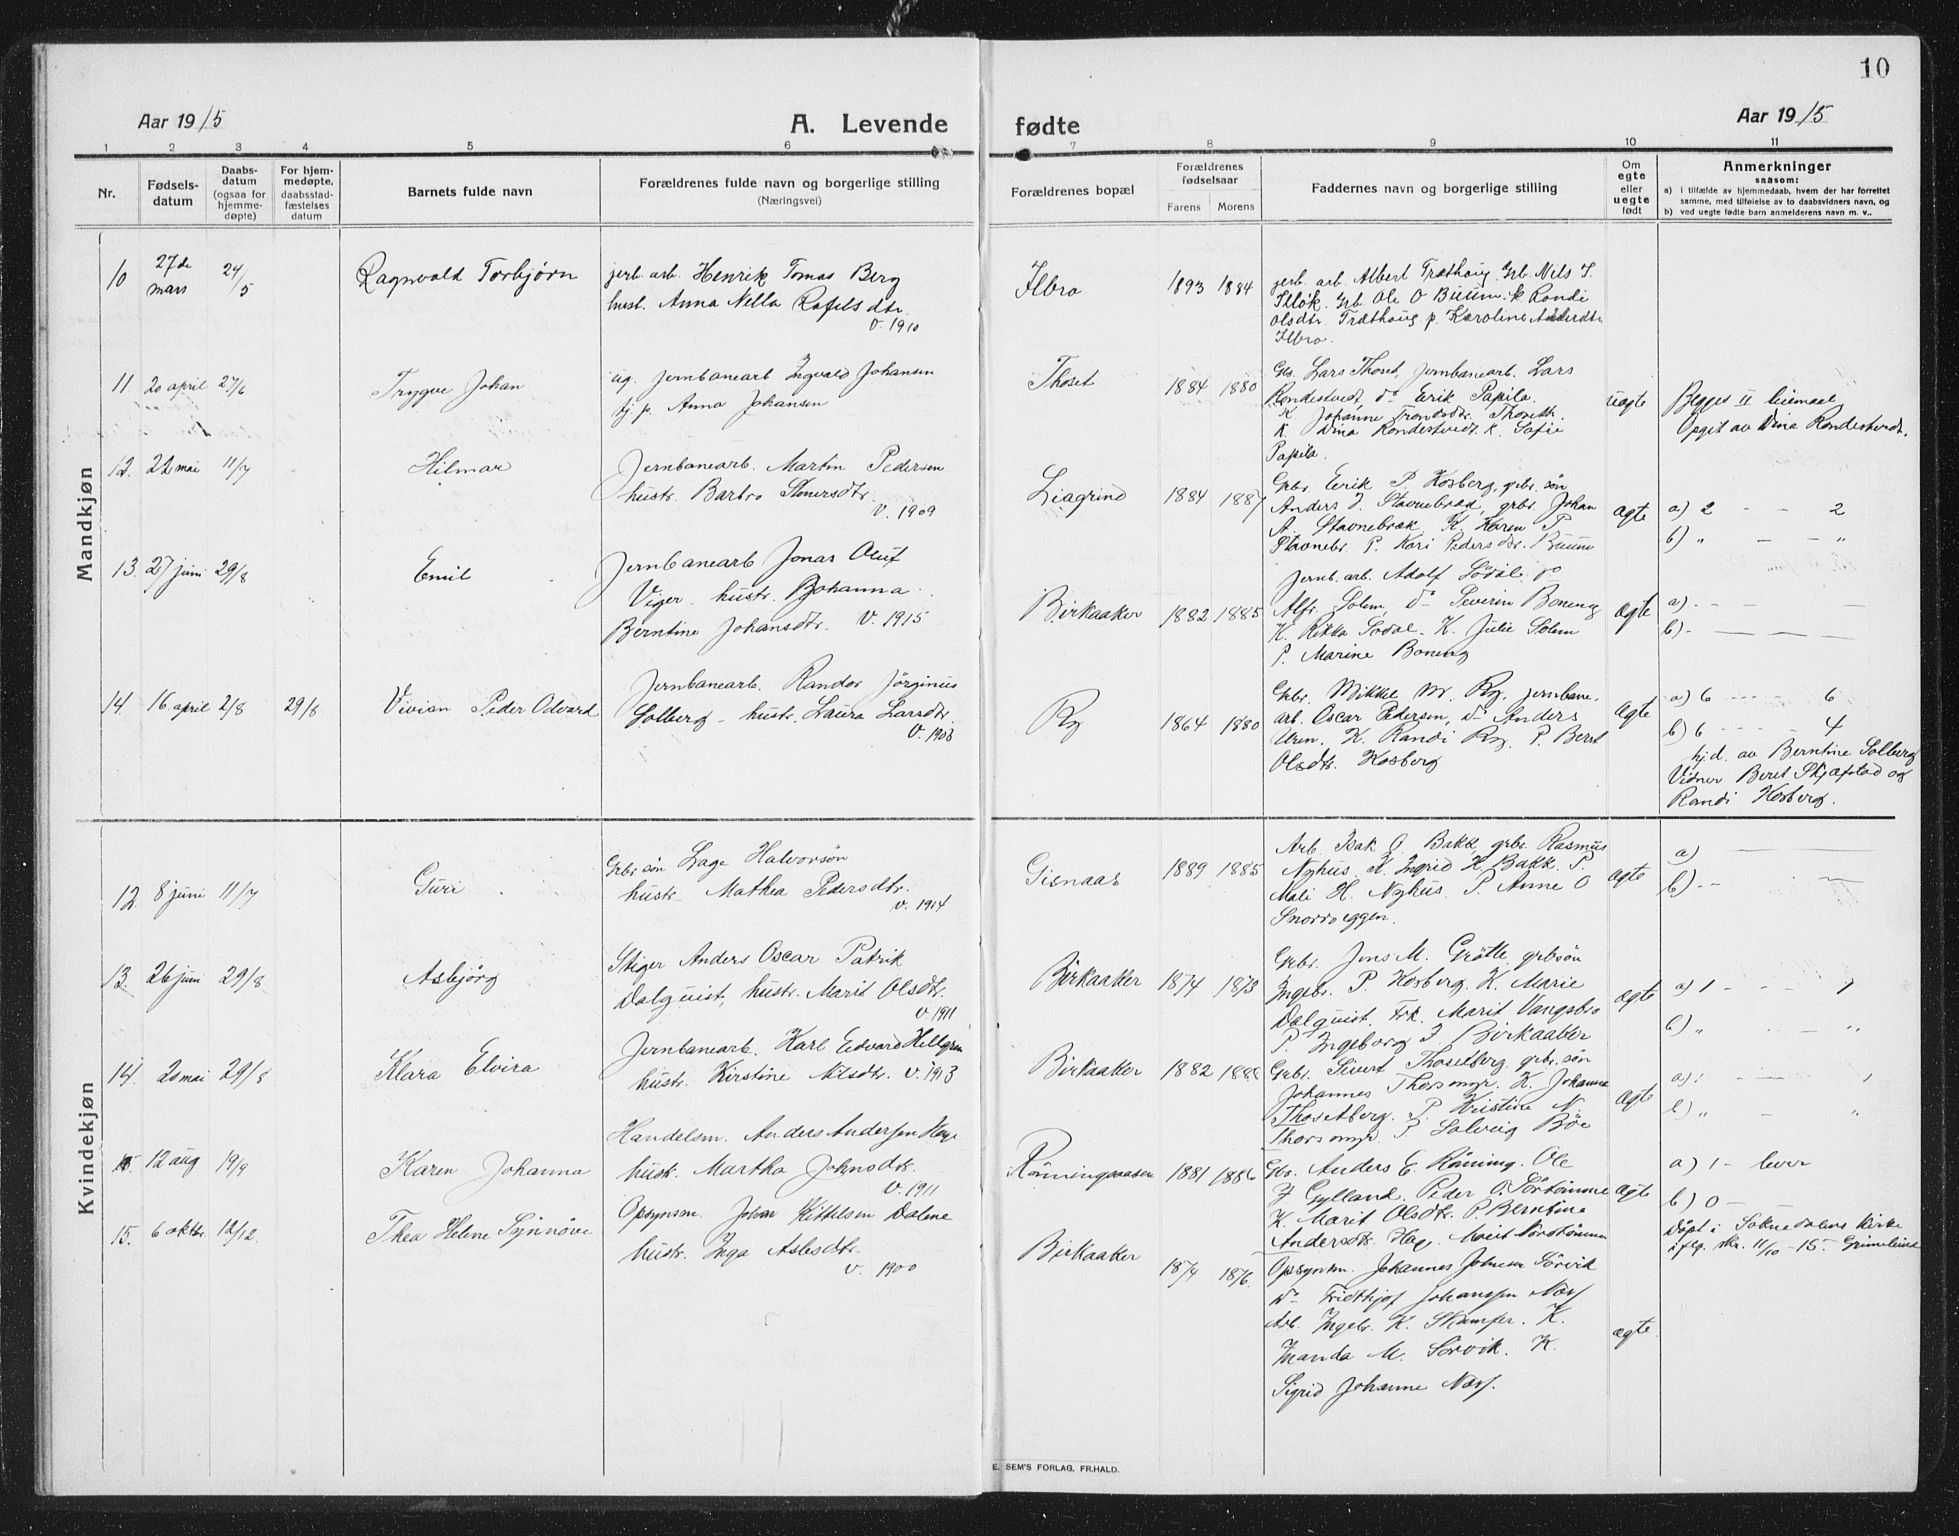 10
Aar 1915
A. Levende
fødte
Aar 1915
1 2 3 4 5 6 7 8 9 10 11
Nr.
Fødsels-
datum
Daabs-
datum
(ogsaa for
hjemme-
døpte)
For hjem-
medøpte,
daabsstad-
fæstelses
datum
Barnets fulde navn
Forældrenes fulde navn og borgerlige stilling
(Næringsvei)
Forældrenes bopæl
Forældrenes
fødselsaar
Farens Morens
Faddernes navn og borgerlige stilling
Om
egte
eller
uegte
født
Anmerkninger
saasom:
a) i tilfælde av hjemmedaab, hvem der har forrettet
samme, med tilføielse av to daabsvidners navn, og
b) ved uegte fødte barn anmelderens navn m. v..
Mandkjøn
10
27de
mars
24/5
Ragnvald Torbjørn
jerb. arb. Henrik Tomas Berg
hust. Anna Nella Rafelsdtr.
v. 1910
Ilbro
1893 1884
jerb. arb. Albert Træthoug. Grb. Nils
Grb. Ole O Buum. k Randi
Olsdtr. Træthoug p. Karoline
Ilbro.
11. 20 april 27/6
Trygve Johan
ug. Jernbanearb Ingvald Johansen
tj. p. Anna Johansen
Thoset
1884 1880
Lars Thoset, Jernbanearb. Lars
Rondestvedt, do Erik Papila.
K. Johanne Trondsdtr. Thoseth.
K. Dina Rondestvedt. K. Sofie
Papila.
uægte
Begges II leiemaal
Opgit av Dina Rondestvedt.
12. 22 mai 11/7
Hilmar
Jernbanearb. Martin Pedersen
hustr. Barbro
v. 1909
Liagrind
1884 1887
Grbr Erik P. Hosberg, grbr. søn
Anders J. Stavnebræk, grbr. Johan
A. Stavnebræk. K. Karen P
Stavnebr. P. Kari Pedersdtr. Buum
ægte
a) 2 - - 2
b) „ - - „
13. 27 juni 29/8
Emil
Jernbanearb Jonas Oluf
Viger. hustr. Johanna
Berntine Johansdtr. v. 1915
Birkaaker
1882 1885
Jernb. arb. Adolf Södal. do
Alfr. Solem, do Severin Boneng
K. Rikka Sodal. K. Julie Solem
P. Marine Boneng
ægte
a). - —
b). — — —
14. 16 april 2/8 29/8
Vivian Peder Odvard
Jernbanearb. Randor Jörginus
Solberg - hustr. Laura Larsdtr.
v. 1903
Ry
1864 1880
Grbr. Mikkel M. Ry, jernbane.
arb. Oscar Pedersen, do Anders
Uren. K. Randi Ry. P. Berit
Olsdtr. Hosberg
ægte
a) 6 - - - 6
b) 6 - - - 4
hj.d. av Berntine Solberg
Vidner Beret Skjæfstad og
Randi Hosberg.
Kvindekjøn
12. 8 juni 11/7
Guri
Grbr søn Lage Halvorsön
hustr- Mathea Pedersdtr.
v. 1914
Gisnaas
1889 1885
Arb. Isak O. Bakk, grbr. Rasmus
Nyhus. K Ingrid H. Bakk. P
Mali H. Nyhus. P. Anne O
Snorroeggen.
ægte
a) —
b). - - —
13. 26 juni 29/8
Asbjörg
Stiger Anders Oscar Patrik
Dalquist, hustr. Marit Olsdtr.
v. 1911
Birkaaker
1874 1873
Grbr. Jens M. Grötte, grbrsön
Ingebr. P Hosberg. K. Marie
Dalquist. Frk. Marit Vangsbro
P. Ingeborg J Birkaaker
ægte
a) 1 - - 1
b) „ - - „
14. 20 mai 29/8
Klara Elvira
Jernbanearb. Karl Edvard Hellgren
hustr. Kirstine Nilsdtr. v. 1913
Birkaaker
1882 1888
Grbr. Sivert Thosetberg, grbr. søn
Johannes Thorsmyr. K. Johanna
Thosetberg. P. Kristine N
Thorsmyr. P Solveig Böe
ægte
a) 1 — — 1
b) „ — „
15. 12 aug 19/9
Karen Johanna
Handelsm. Anders Andersen
hustr. Martha Johnsdtr.
v. 1911
1881 1886
Anders E. Röning. Ole
J Gylland. Peder O. Sörtömme
K. Marit Olsdtr. P. Berntine
Andersdtr. Hag. Marit
ægte
a) 1 - lever
b) 0 —
Döpt i Soknedalens kirke
iflg. skr. 11/10 - 15.
15. 6 oktbr. 12/12.
Thea Helene Synnöve
Opsynsm. Johan Kittelsen Dalene
hustr. Inga Aslesdtr.
v. 1900
Birkaaker
1874 1876.
Opsynsm. Johannes Johnsen Sörvik
do Fridthjof Johanssen Næss
Arb. Ingebr. K. Skamfer. K.
Inanda M. Sörvik. K.
Sigrid Johanne Næss.
ægte
E. SEM'S FORLAG, FR.HALD.